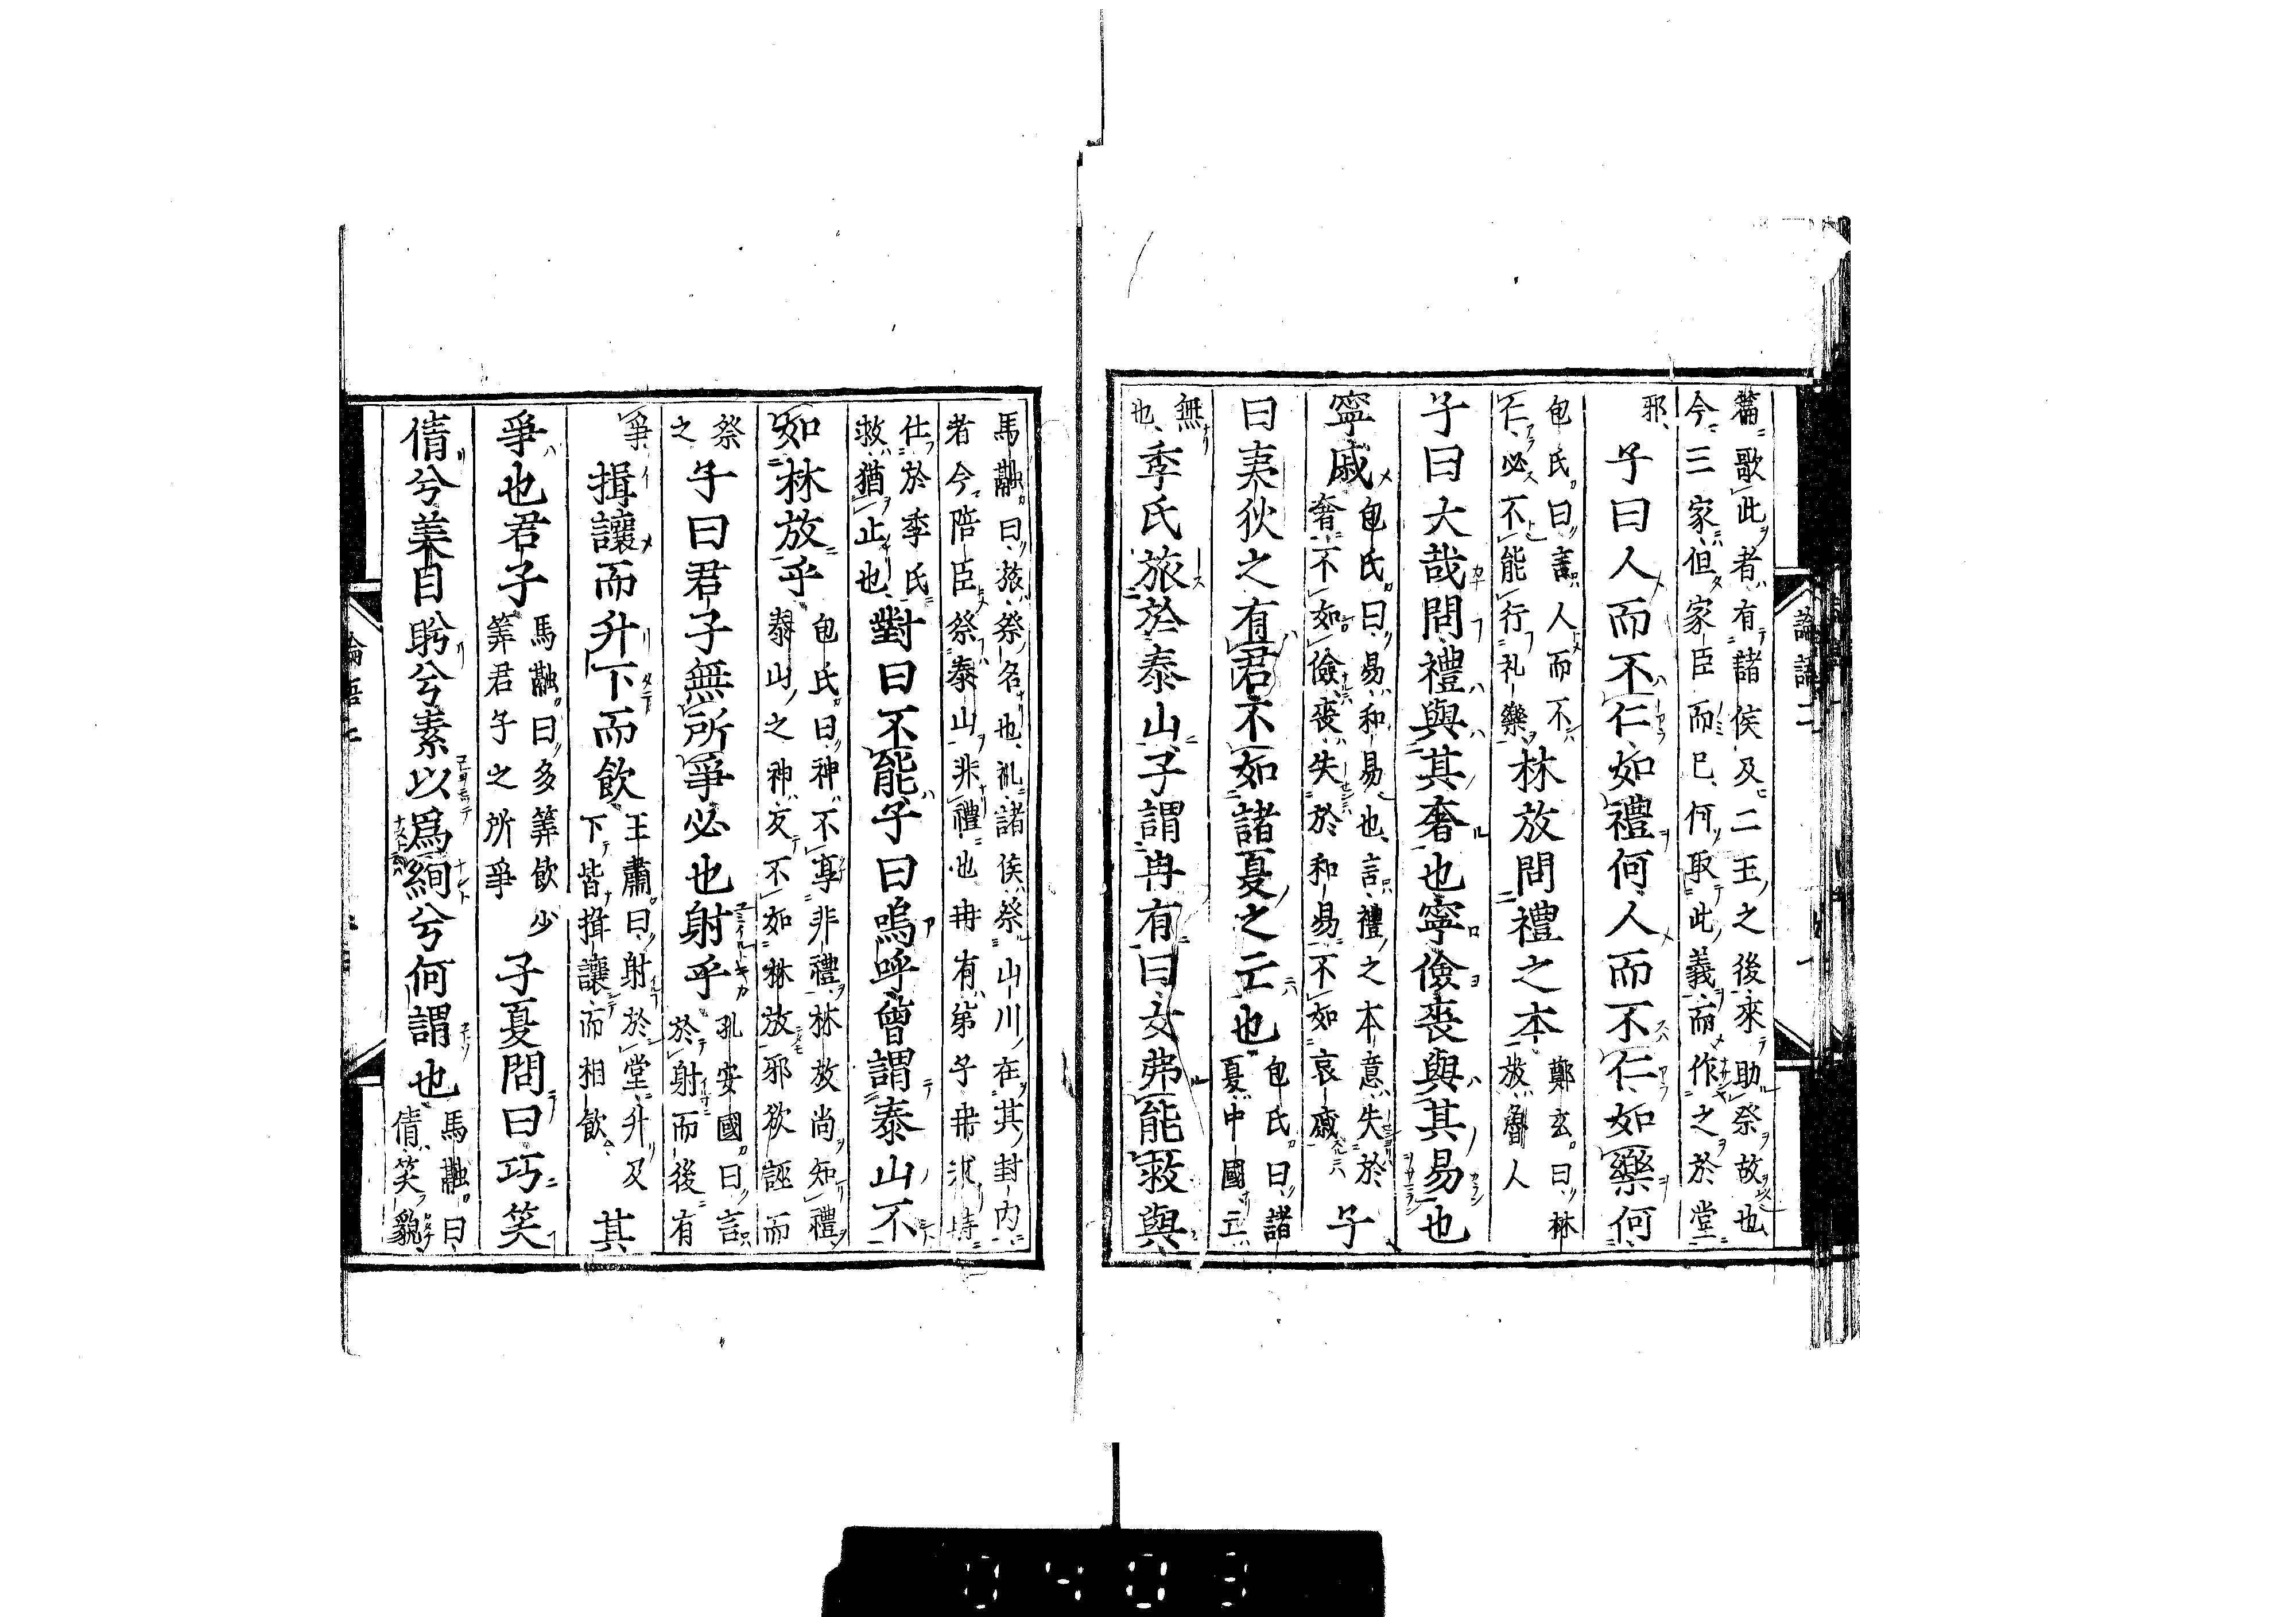 篇歌此者有諸侯及二王之後來助祭故也
今三家但家臣而已何取此義而作之於堂
邪 子曰人而不仁如禮何人而不仁如樂何
包氏曰言人而不
仁必不能行礼樂 林放問禮之本 鄭玄曰林
放魯人
子曰大哉問禮與其奢也寧儉喪與其易也
寧戚 包氏曰易和易也言禮之本意失於
奢不如儉喪失於和易不如哀戚 子
曰夷狄之有君不如諸夏之亡也 包氏曰諸
夏中國亡
無
也 季氏旅於泰山子謂冉有曰女弗能救與
馬融曰旅祭名也礼諸侯祭山川在其封内
者今陪臣祭泰山非禮也冉有弟子冉求時
仕於季氏
救猶止也 對曰不能子曰嗚呼曾謂泰山不
如林放乎 包氏曰神不享非禮林放尚知禮
泰山之神反不如林放邪欲誣而
祭
之 子曰君子無所爭必也射乎 孔安國曰言
於射而後有
爭 揖讓而升下而飲 王肅曰射於堂升及
下皆揖讓而相飲 其
爭也君子 馬融曰多筭飲少
筭君子之所爭 子夏問曰巧笑
倩兮美目盼兮素以爲絢兮何謂也 馬融曰
倩笑貌
論語二
0403